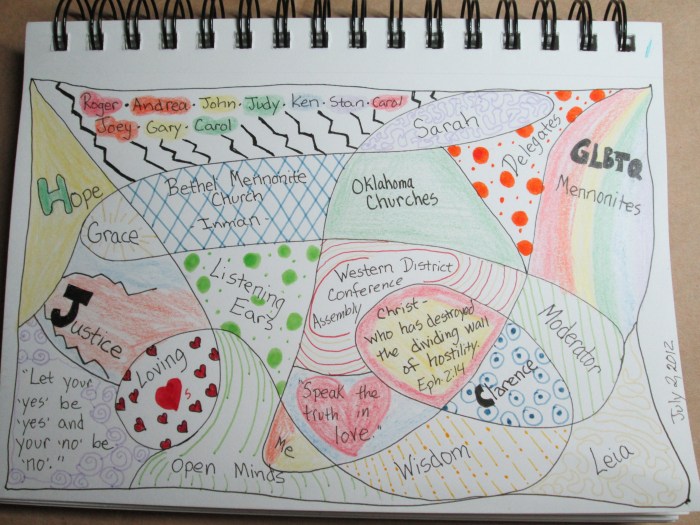 Roger · Andrea · John · Judy · Ken · Stan · Carol
Joey · Gary · Carol
Sarah
Delegates
GLBTQ
Mennonites
Hope
Grace
Bethel Mennonite
Church
- Inman -
Oklahoma
Churches
Listening
Ears
Western District
Conference
Assembly
Christ -
who has destroyed
the dividing wall
of hostility.
Eph. 2:14
Moderator
Justice
Loving
♥'s
"Let your
'yes' be
'yes' and
your 'no' be
'no'."
"Speak the
truth in
love."
Clarence
Me
Open Minds
Wisdom
Leia
July 2, 2012